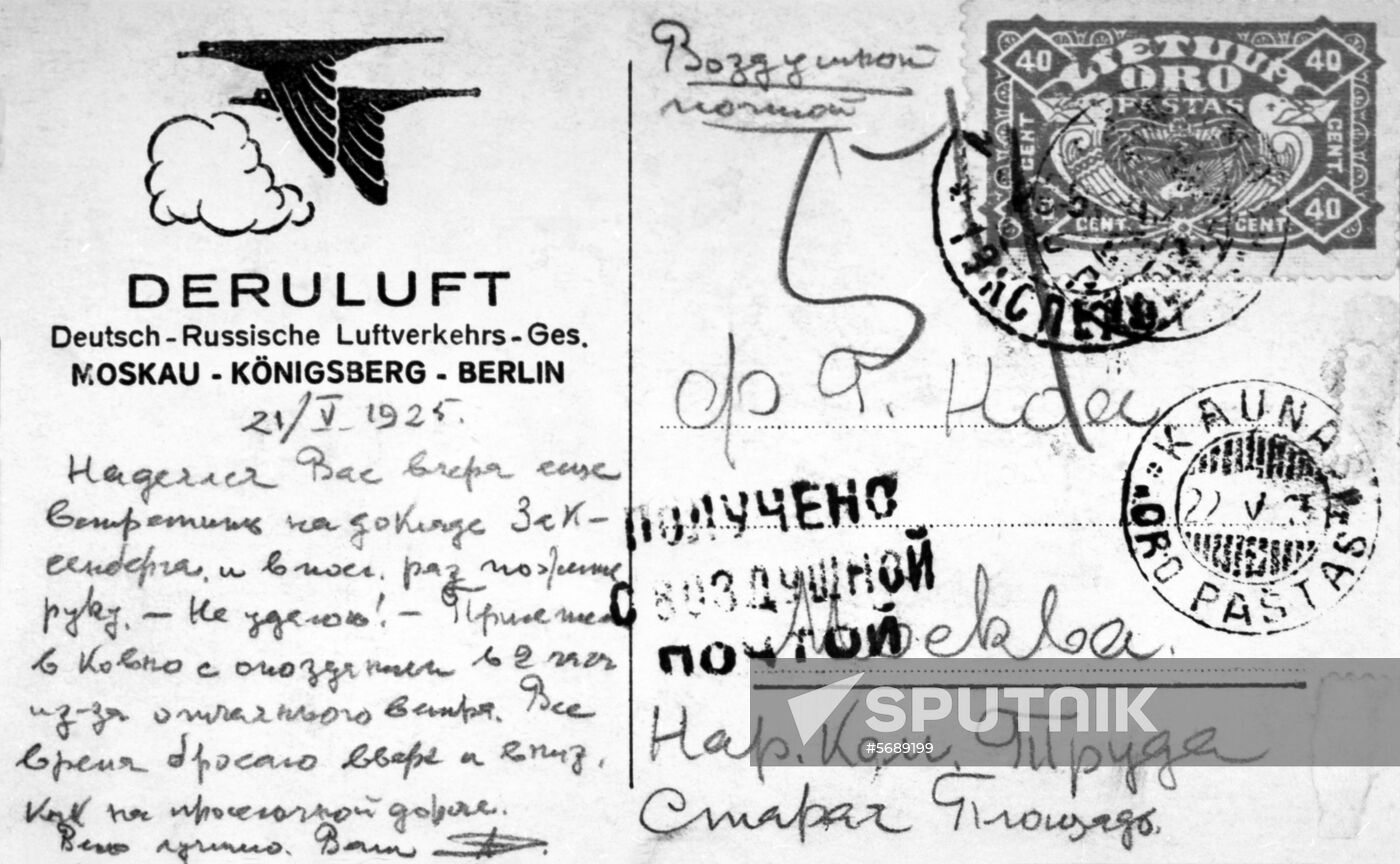 DERULUFT
Deutsch-Russische Luftverkehrs-Ges.
MOSKAU - KÖNIGSBERG - BERLIN
21/V 1925.
Надеялся Вас вчера еще
встретить на докладе Зак-
сенберга, и в посл. раз пожать
руку. — Не удалось! — Прилетел
в Ковно с опозданием в 2 часа
из-за отчаянного ветра. Все
время бросало вверх и вниз,
как на проселочной дороге.
Всего лучшего. Ваш
Воздушной
почтой
40 LIETUVA 40
ORO
PASTAS
CENT CENT
CENT. CENT.
40
KAUNAS
22 V
"ORO PAŠTAS"
ПОЛУЧЕНО
С ВОЗДУШНОЙ
ПОЧТОЙ
Москва.
Нар. Ком. Труда
Старая Площадь.
SPUTNIK
#5689199